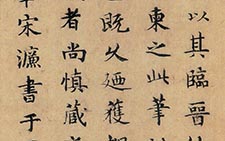 以其臨晉
東之此筆
既久廼獲
者尚慎藏
宋濂書于